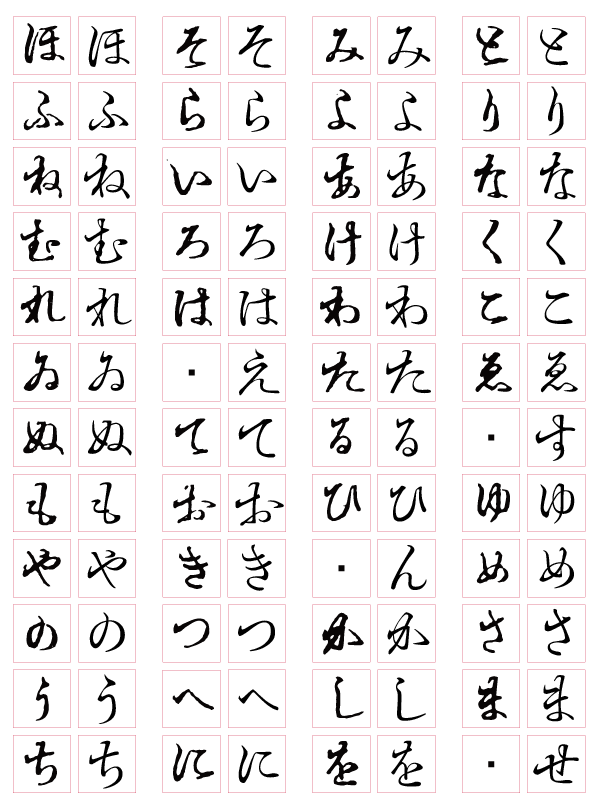 ほほ そそ みみ とと
ふふ らら よよ りり
ねね いい ああ なな
むむ ろろ けけ くく
れれ はは わわ ここ
ゐゐ ・え たた ゑゑ
ぬぬ てて るる ・す
もも おお ひひ ゆゆ
やや きき ・ん めめ
のの つつ かか ささ
うう へへ しし まま
ちち にに をを ・せ